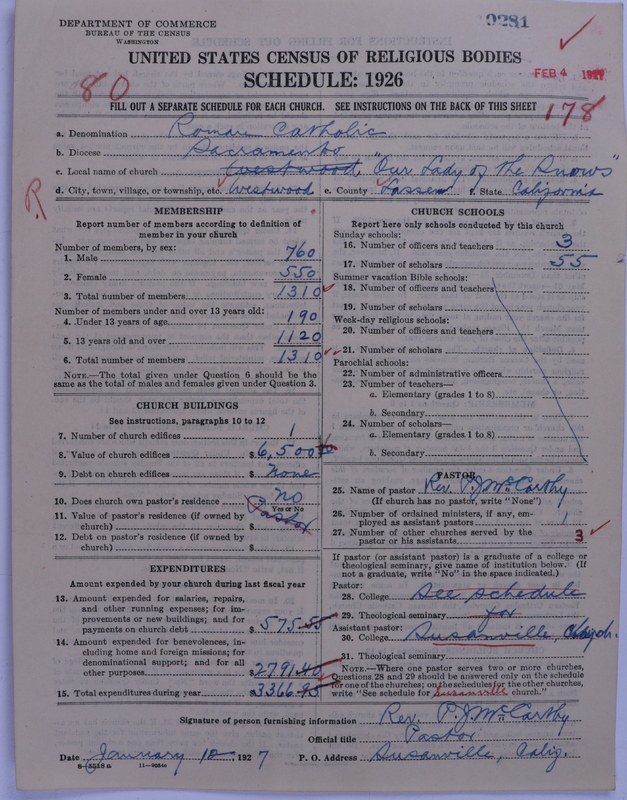 DEPARTMENT OF COMMERCE
BUREAU OF THE CENSUS
WASHINGTON
9281
UNITED STATES CENSUS OF RELIGIOUS BODIES
SCHEDULE: 1926
FEB 4 1927
80
FILL OUT A SEPARATE SCHEDULE FOR EACH CHURCH. SEE INSTRUCTIONS ON THE BACK OF THIS SHEET
178
a. Denomination Roman Catholic
b. Diocese Sacramento
c. Local name of church Westwood "Our Lady of The Snows"
d. City, town, village, or township, etc. Westwood e. County Lassen f. State California
R
MEMBERSHIP
Report number of members according to definition of
member in your church
Number of members, by sex:
1. Male 760
2. Female 550
3. Total number of members 1310
Number of members under and over 13 years old:
4. Under 13 years of age 190
5. 13 years old and over 1120
6. Total number of members 1310
NOTE.—The total given under Question 6 should be
same as the total of males and females given under Question 3.
CHURCH BUILDINGS
See instructions, paragraphs 10 to 12
7. Number of church edifices 1
8. Value of church edifices $ 6,500
9. Debt on church edifices $ None
10. Does church own pastor's residence No
Yes or No
11. Value of pastor's residence (if owned by
church) $ Pastor
12. Debt on pastor's residence (if owned by
church) $
EXPENDITURES
Amount expended by your church during last fiscal year
13. Amount expended for salaries, repairs,
and other running expenses; for im-
provements or new buildings; and for
payments on church debt $ 575.50
14. Amount expended for benevolences, in-
cluding home and foreign missions; for
denominational support; and for all
other purposes $ 2791.40
15. Total expenditures during year $ 3366.95
CHURCH SCHOOLS
Report here only schools conducted by this church
Sunday schools:
16. Number of officers and teachers 3
17. Number of scholars 55
Summer vacation Bible schools:
18. Number of officers and teachers
19. Number of scholars
Week-day religious schools:
20. Number of officers and teachers
21. Number of scholars
Parochial schools:
22. Number of administrative officers
23. Number of teachers—
a. Elementary (grades 1 to 8)
b. Secondary
24. Number of scholars—
a. Elementary (grades 1 to 8)
b. Secondary
PASTOR
25. Name of pastor Rev. P. J. McCarthy
(If church has no pastor, write "None")
26. Number of ordained ministers, if any, em-
ployed as assistant pastors 1
27. Number of other churches served by the
pastor or his assistants 3
If pastor (or assistant pastor) is a graduate of a college or
theological seminary, give name of institution below. (If
not a graduate, write "No" in the space indicated.)
Pastor:
28. College See schedule
29. Theological seminary for
Assistant pastor:
30. College Susanville, Church.
31. Theological seminary
NOTE.—Where one pastor serves two or more churches,
Questions 28 and 29 should be answered only on the schedule
for one of the churches; on the schedules for the other churches,
write "See schedule for Susanville church."
Signature of person furnishing information Rev. P. J. McCarthy
Official title Pastor
Date January 10, 1927 P. O. Address Susanville, Calif.